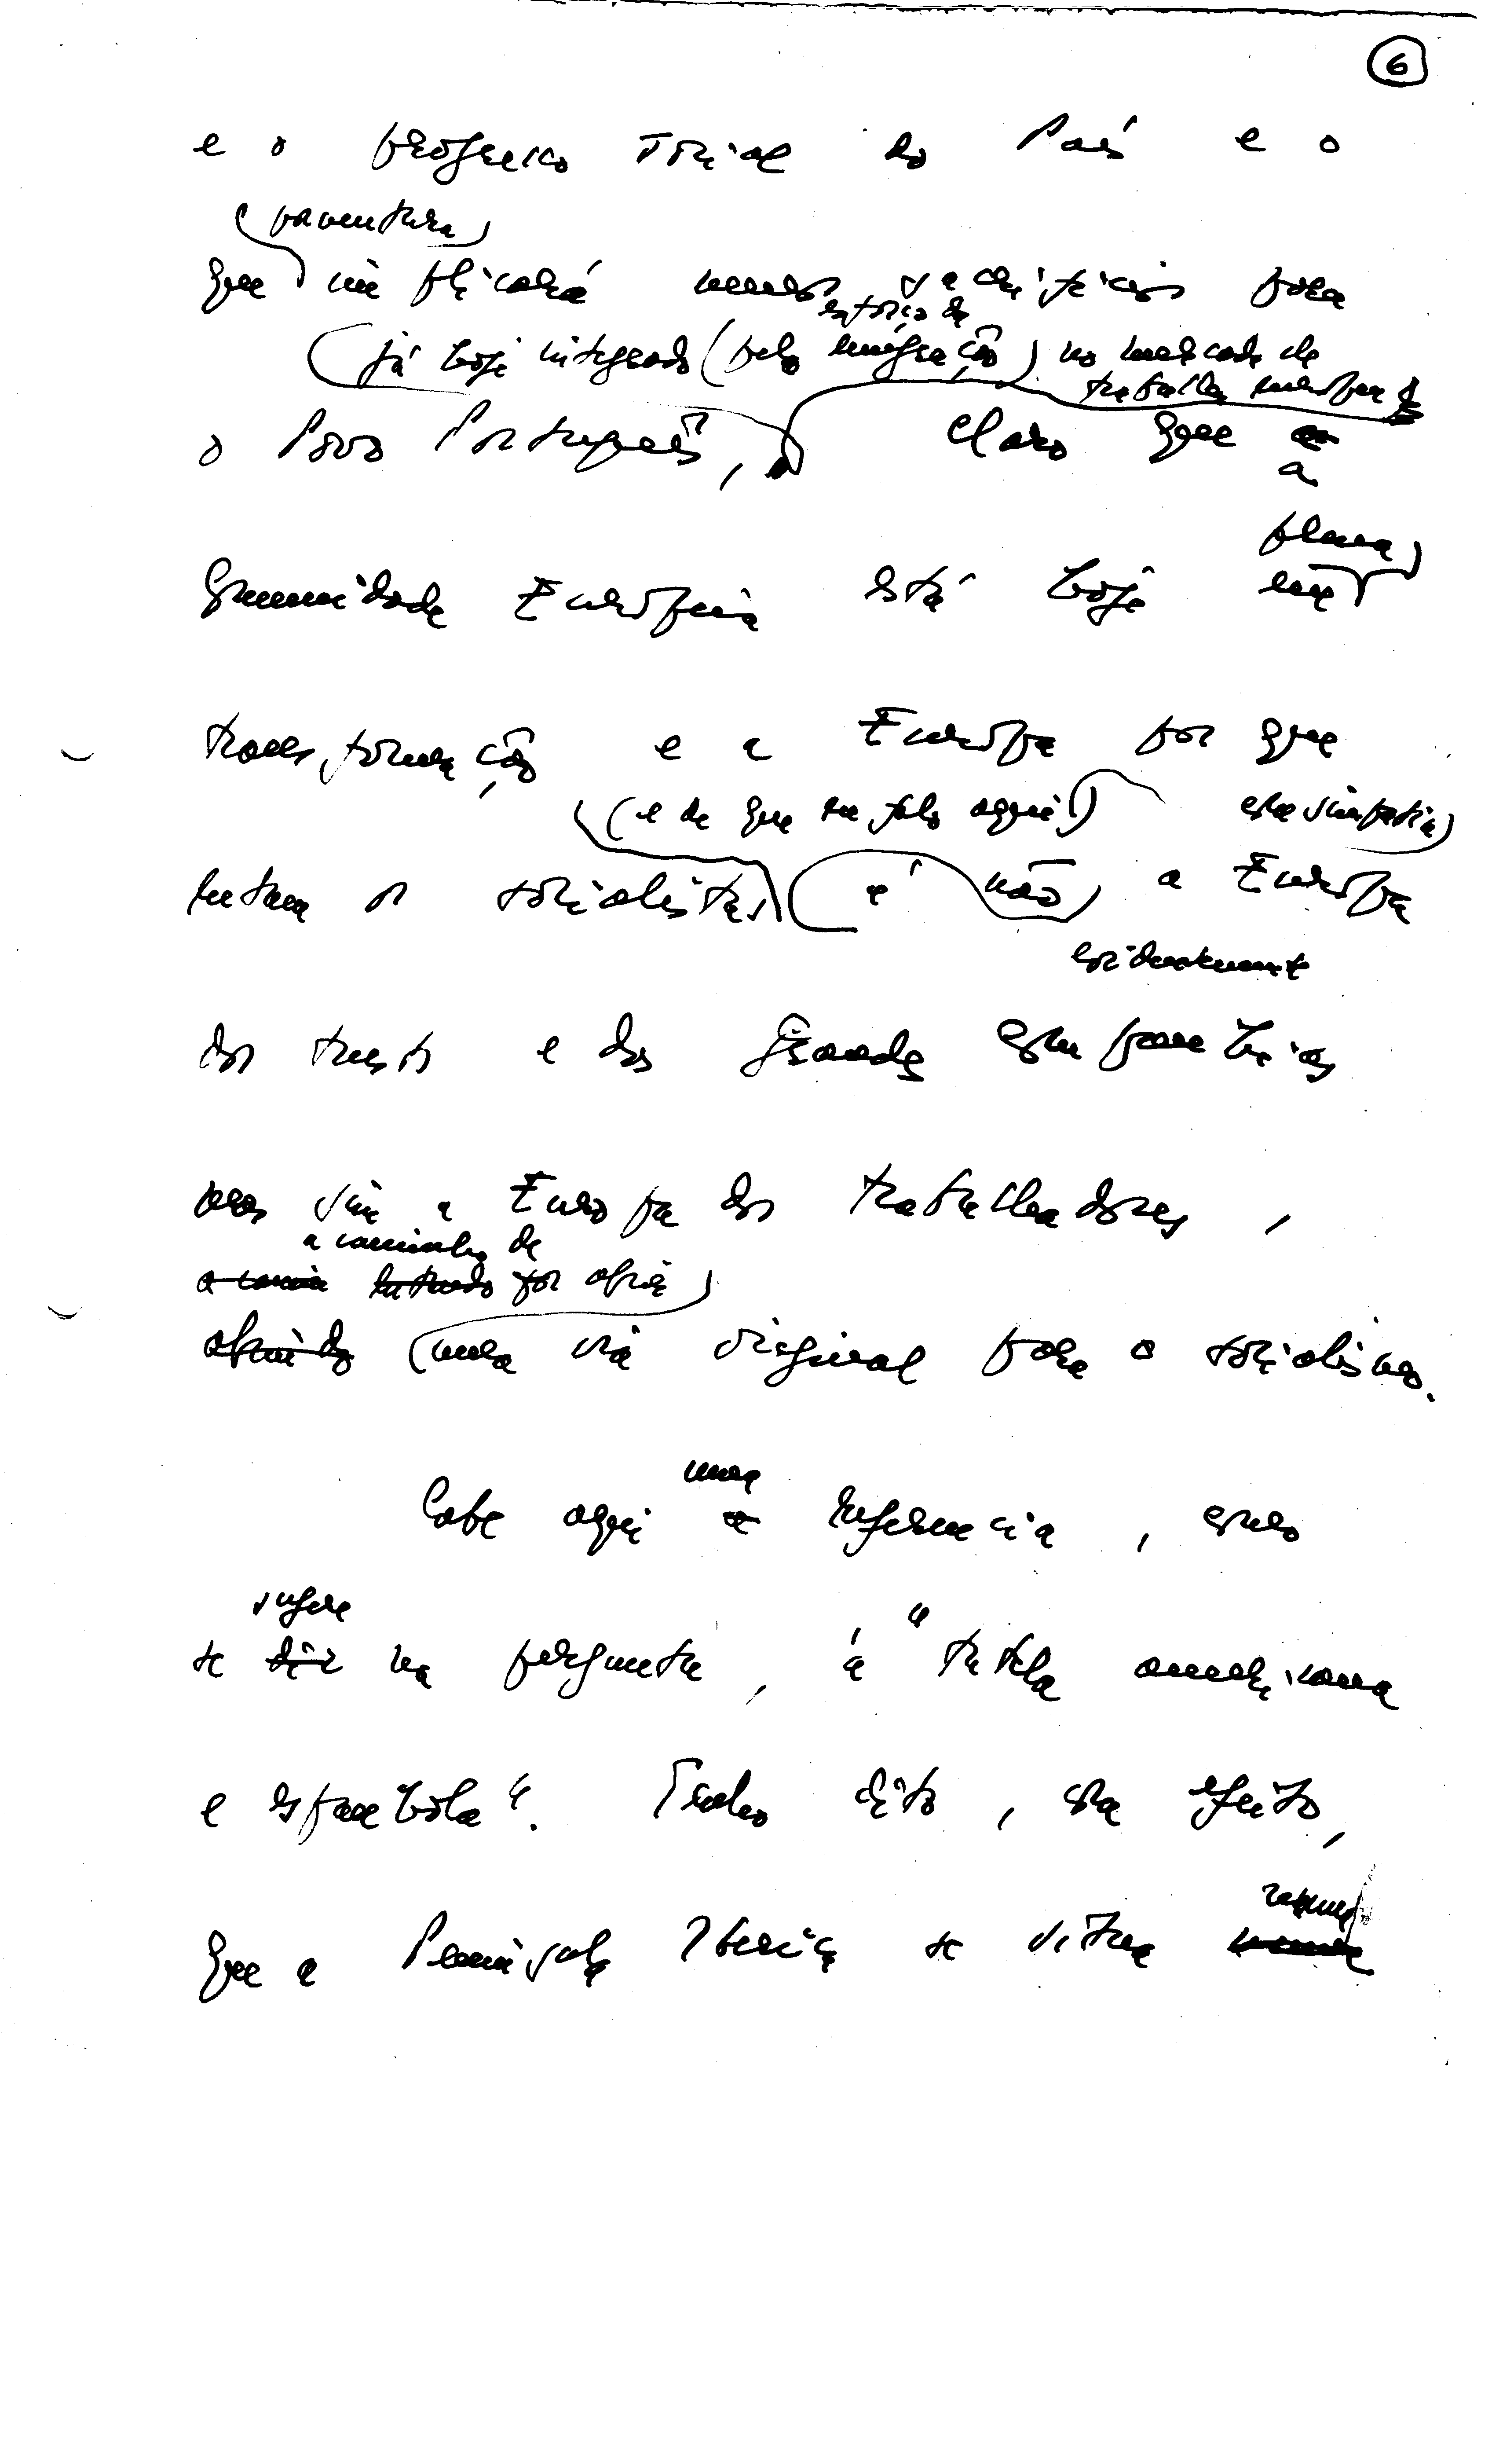 6
e o progresso social do País e o
porventura
que implicará menos sacrifícios para
esforço da
já hoje integrado (pela emigração) no mercado de
trabalho europeu
o Povo Português, Claro que a
a
plena
Comunidade Europeia está hoje em
transformação e a Europa por que
(e de que eu falo aqui!) esta simpatia
lutam os socialistas é não a Europa
evidentemente
dos trusts e das grandes companhias
mas sim a Europa dos trabalhadores,
a caminho de
a camin lutando por abrir
abrindo uma via original para o socialismo.
uma
Cabe aqui a referencia, como
sugere
se diz na pergunta, à "tutela americana
e espanhola". Tenho dito, com efeito,
que a Península Ibérica se situa numa